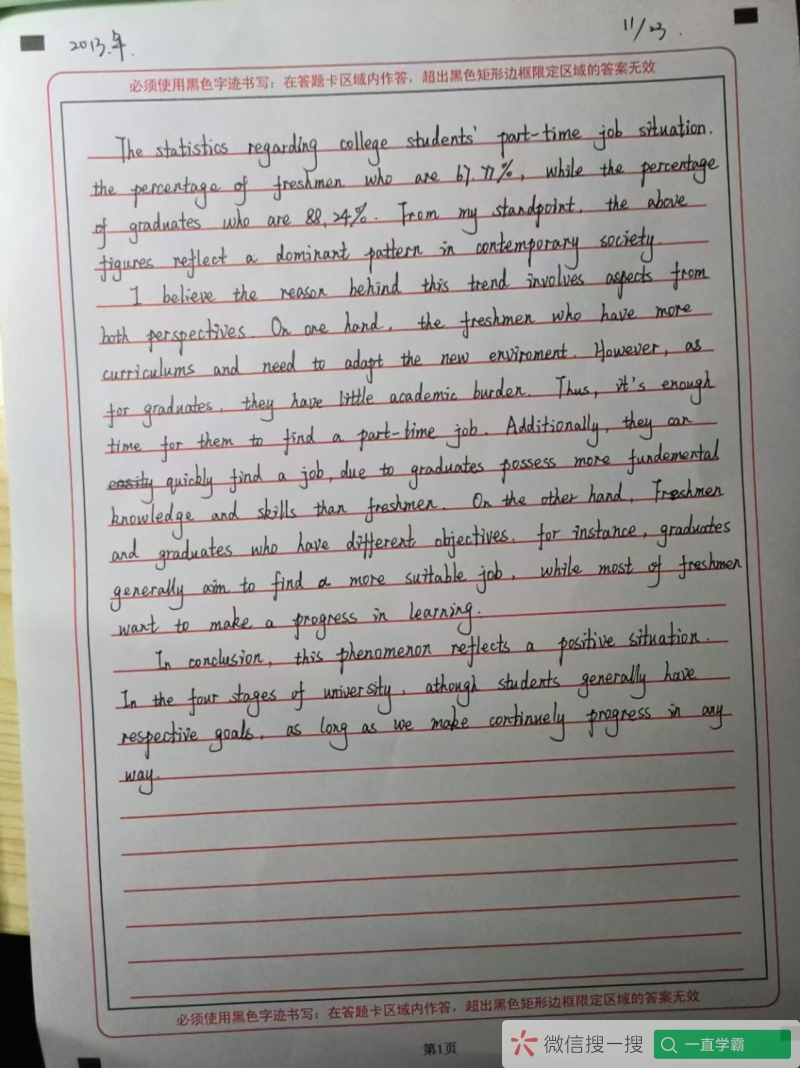 2013.年.
11/23.
必须使用黑色字迹书写：在答题卡区域内作答，超出黑色矩形边框限定区域的答案无效
The statistics regarding college students' part-time job situation.
the percentage of freshmen who are 67.77%, while the percentage
of graduates who are 88.24%. From my standpoint, the above
figures reflect a dominant pattern in contemporary society.
I believe the reason behind this trend involves aspects from
both perspectives. On one hand, the freshmen who have more
curriculums and need to adapt the new enviroment. However, as
for graduates, they have little academic burden. Thus, it's enough
time for them to find a part-time job. Additionally, they can
easily quickly find a job, due to graduates possess more fundemental
knowledge and skills than freshmen. On the other hand, Freshmen
and graduates who have different objectives. for instance, graduates
generally aim to find a more suitable job, while most of freshmen
want to make a progress in learning.
In conclusion, this phenomenon reflects a positive situation.
In the four stages of university, athough students generally have
respective goals, as long as we make continuely progress in any
way.
必须使用黑色字迹书写：在答题卡区域内作答，超出黑色矩形边框限定区域的答案无效
第1页
微信搜一搜
一直学霸